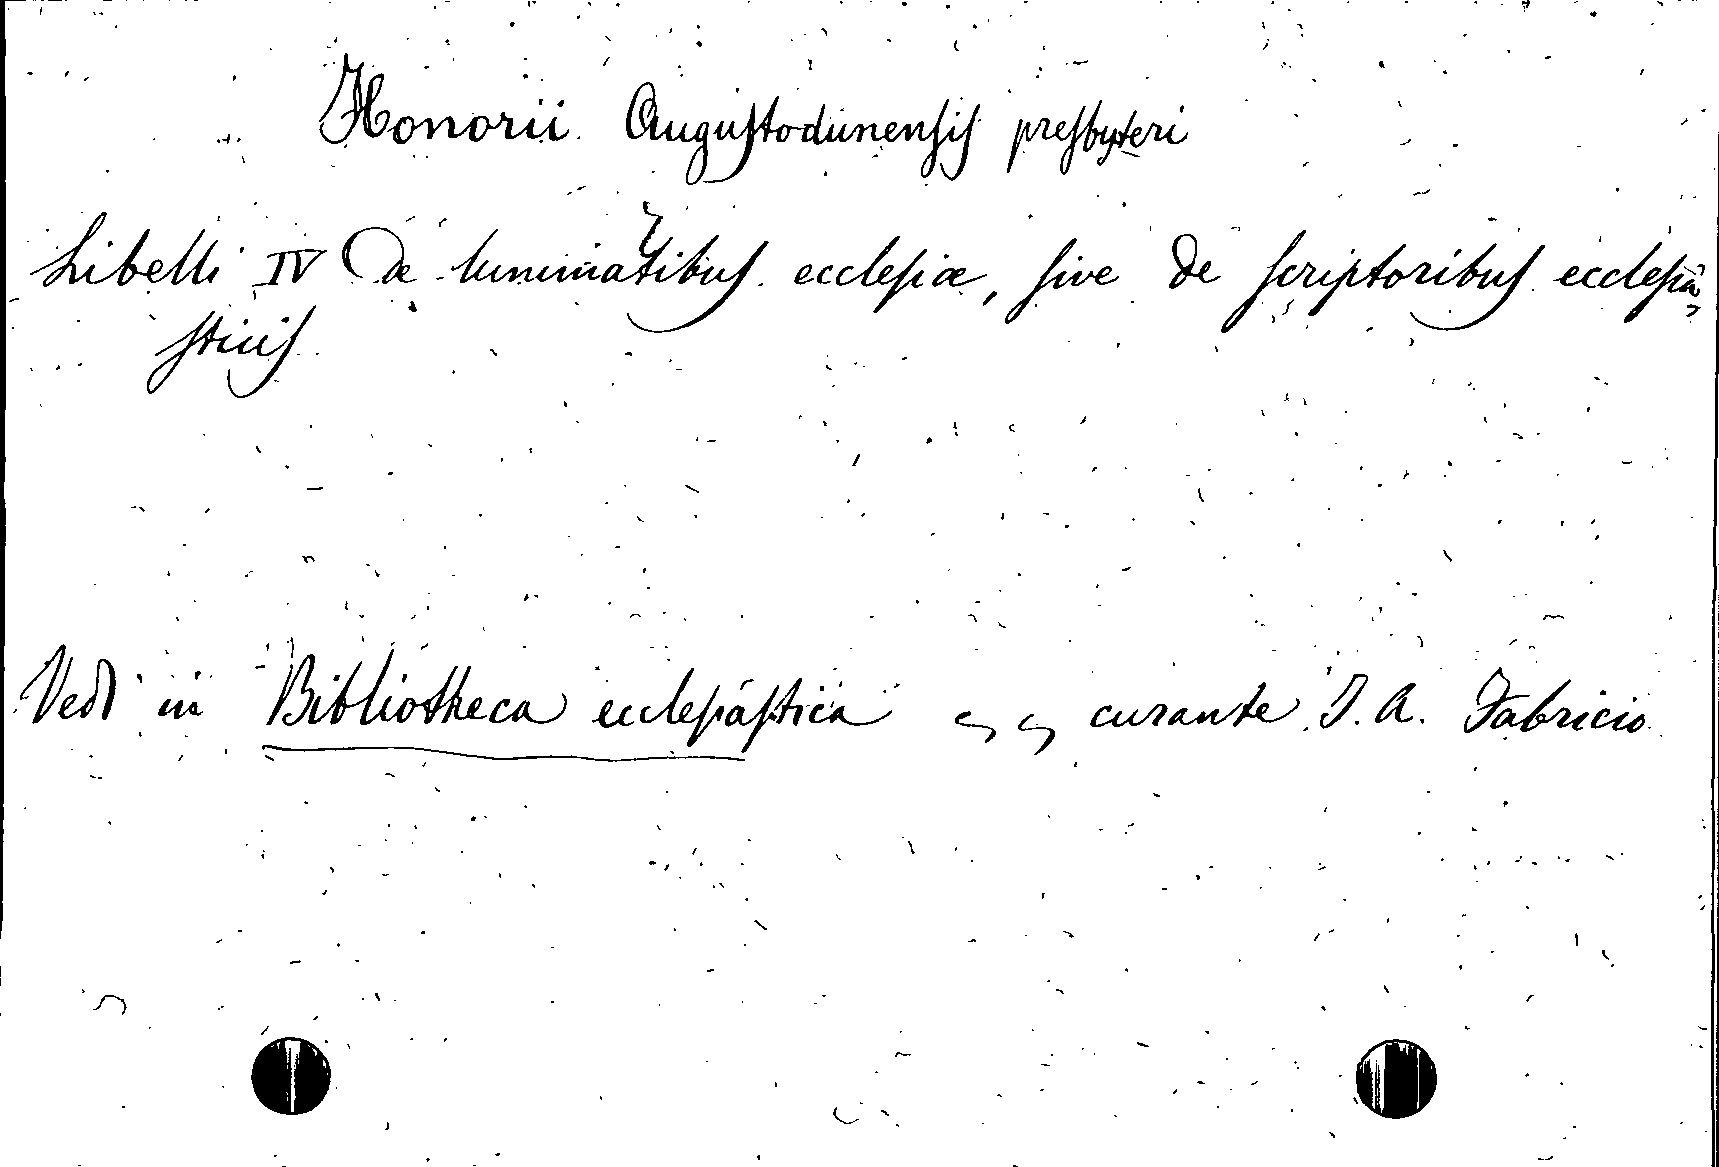 Honorii Augustodunensis presbyteri
Libelli IV De luminatibus ecclesiæ, sive de scriptoribus ecclesia-
sticis
Vedi in Bibliotheca ecclesiastica curante J. A. Fabricio